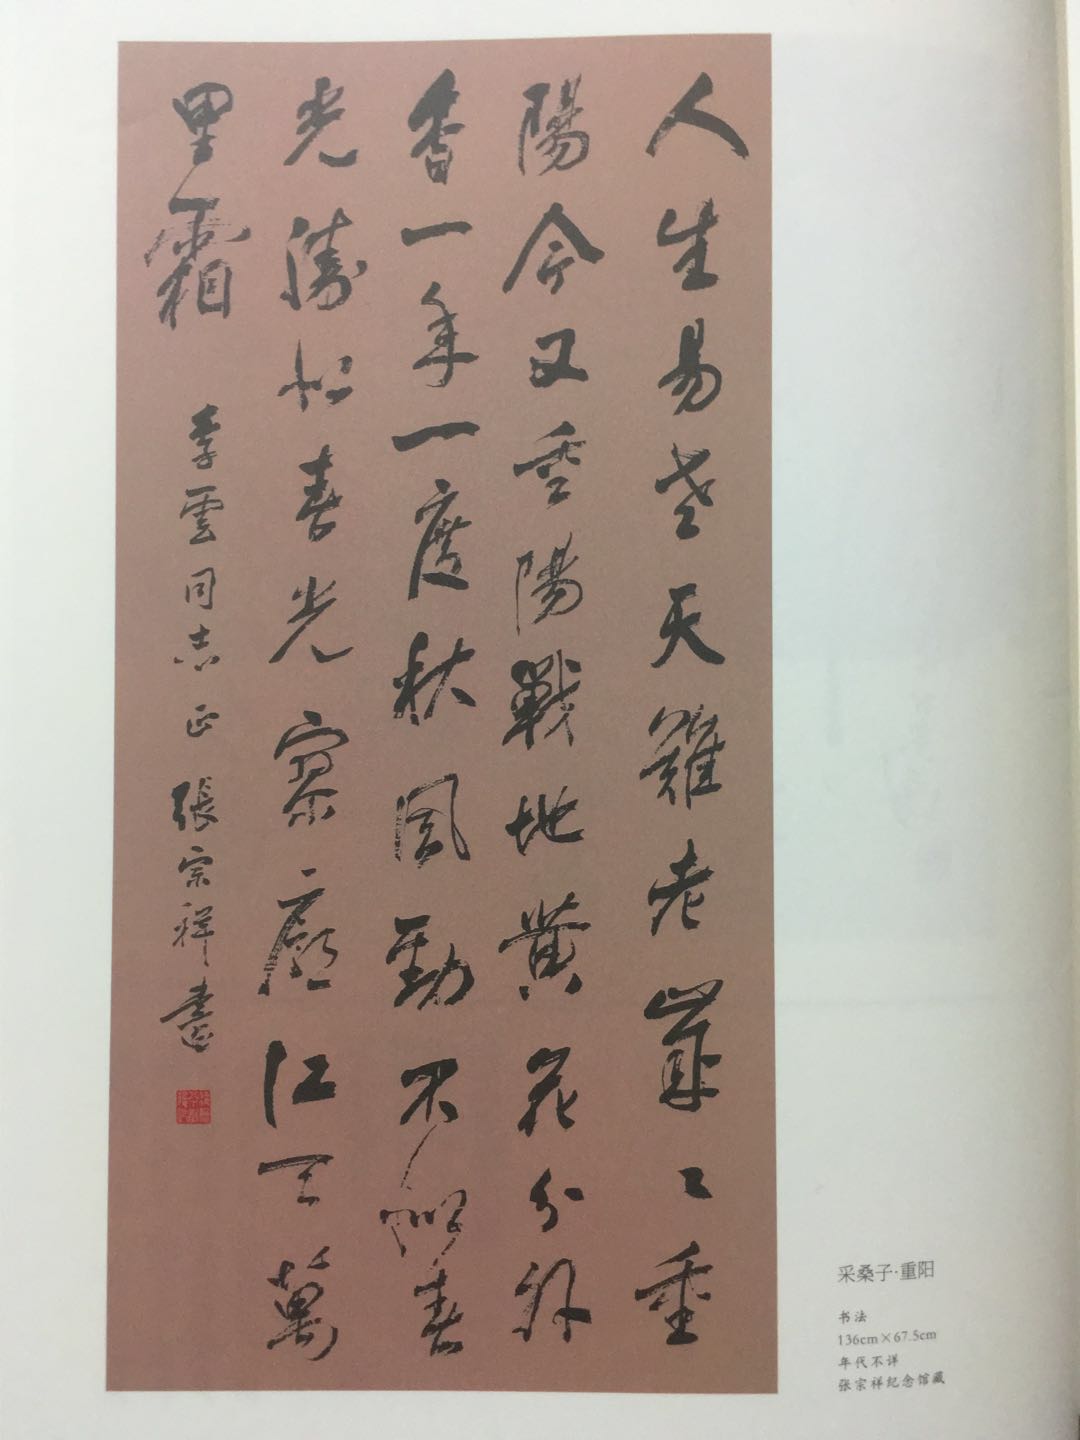 人生易老天難老歲〻重
陽今又重陽戰地黄花分外
香一年一度秋風勁不似春
光勝似春光寥廓江天萬
里霜
李雲同志正 張宗祥書
采桑子·重阳
书法
136cm×67.5cm
年代不详
张宗祥纪念馆藏